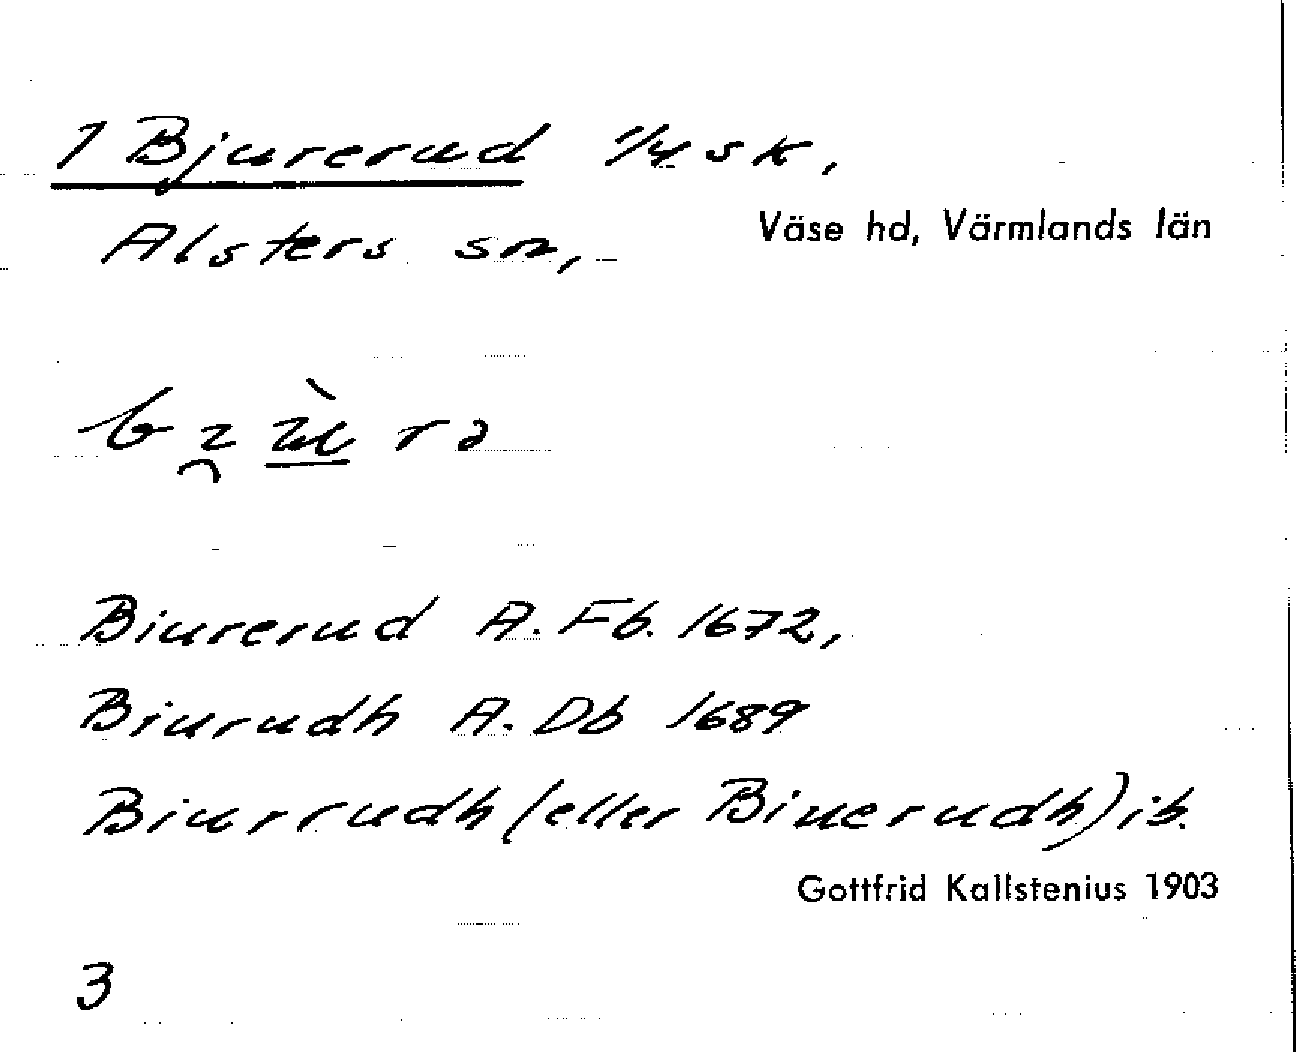 1 Bjurerud 1/4 sk,
Alsters sn, Väse hd, Värmlands län
Biurerud A. Fb. 1672,
Biurudh A. Db 1689
Biurrudh (eller Biuerudh) ib.
Gottfrid Kallstenius 1903
3